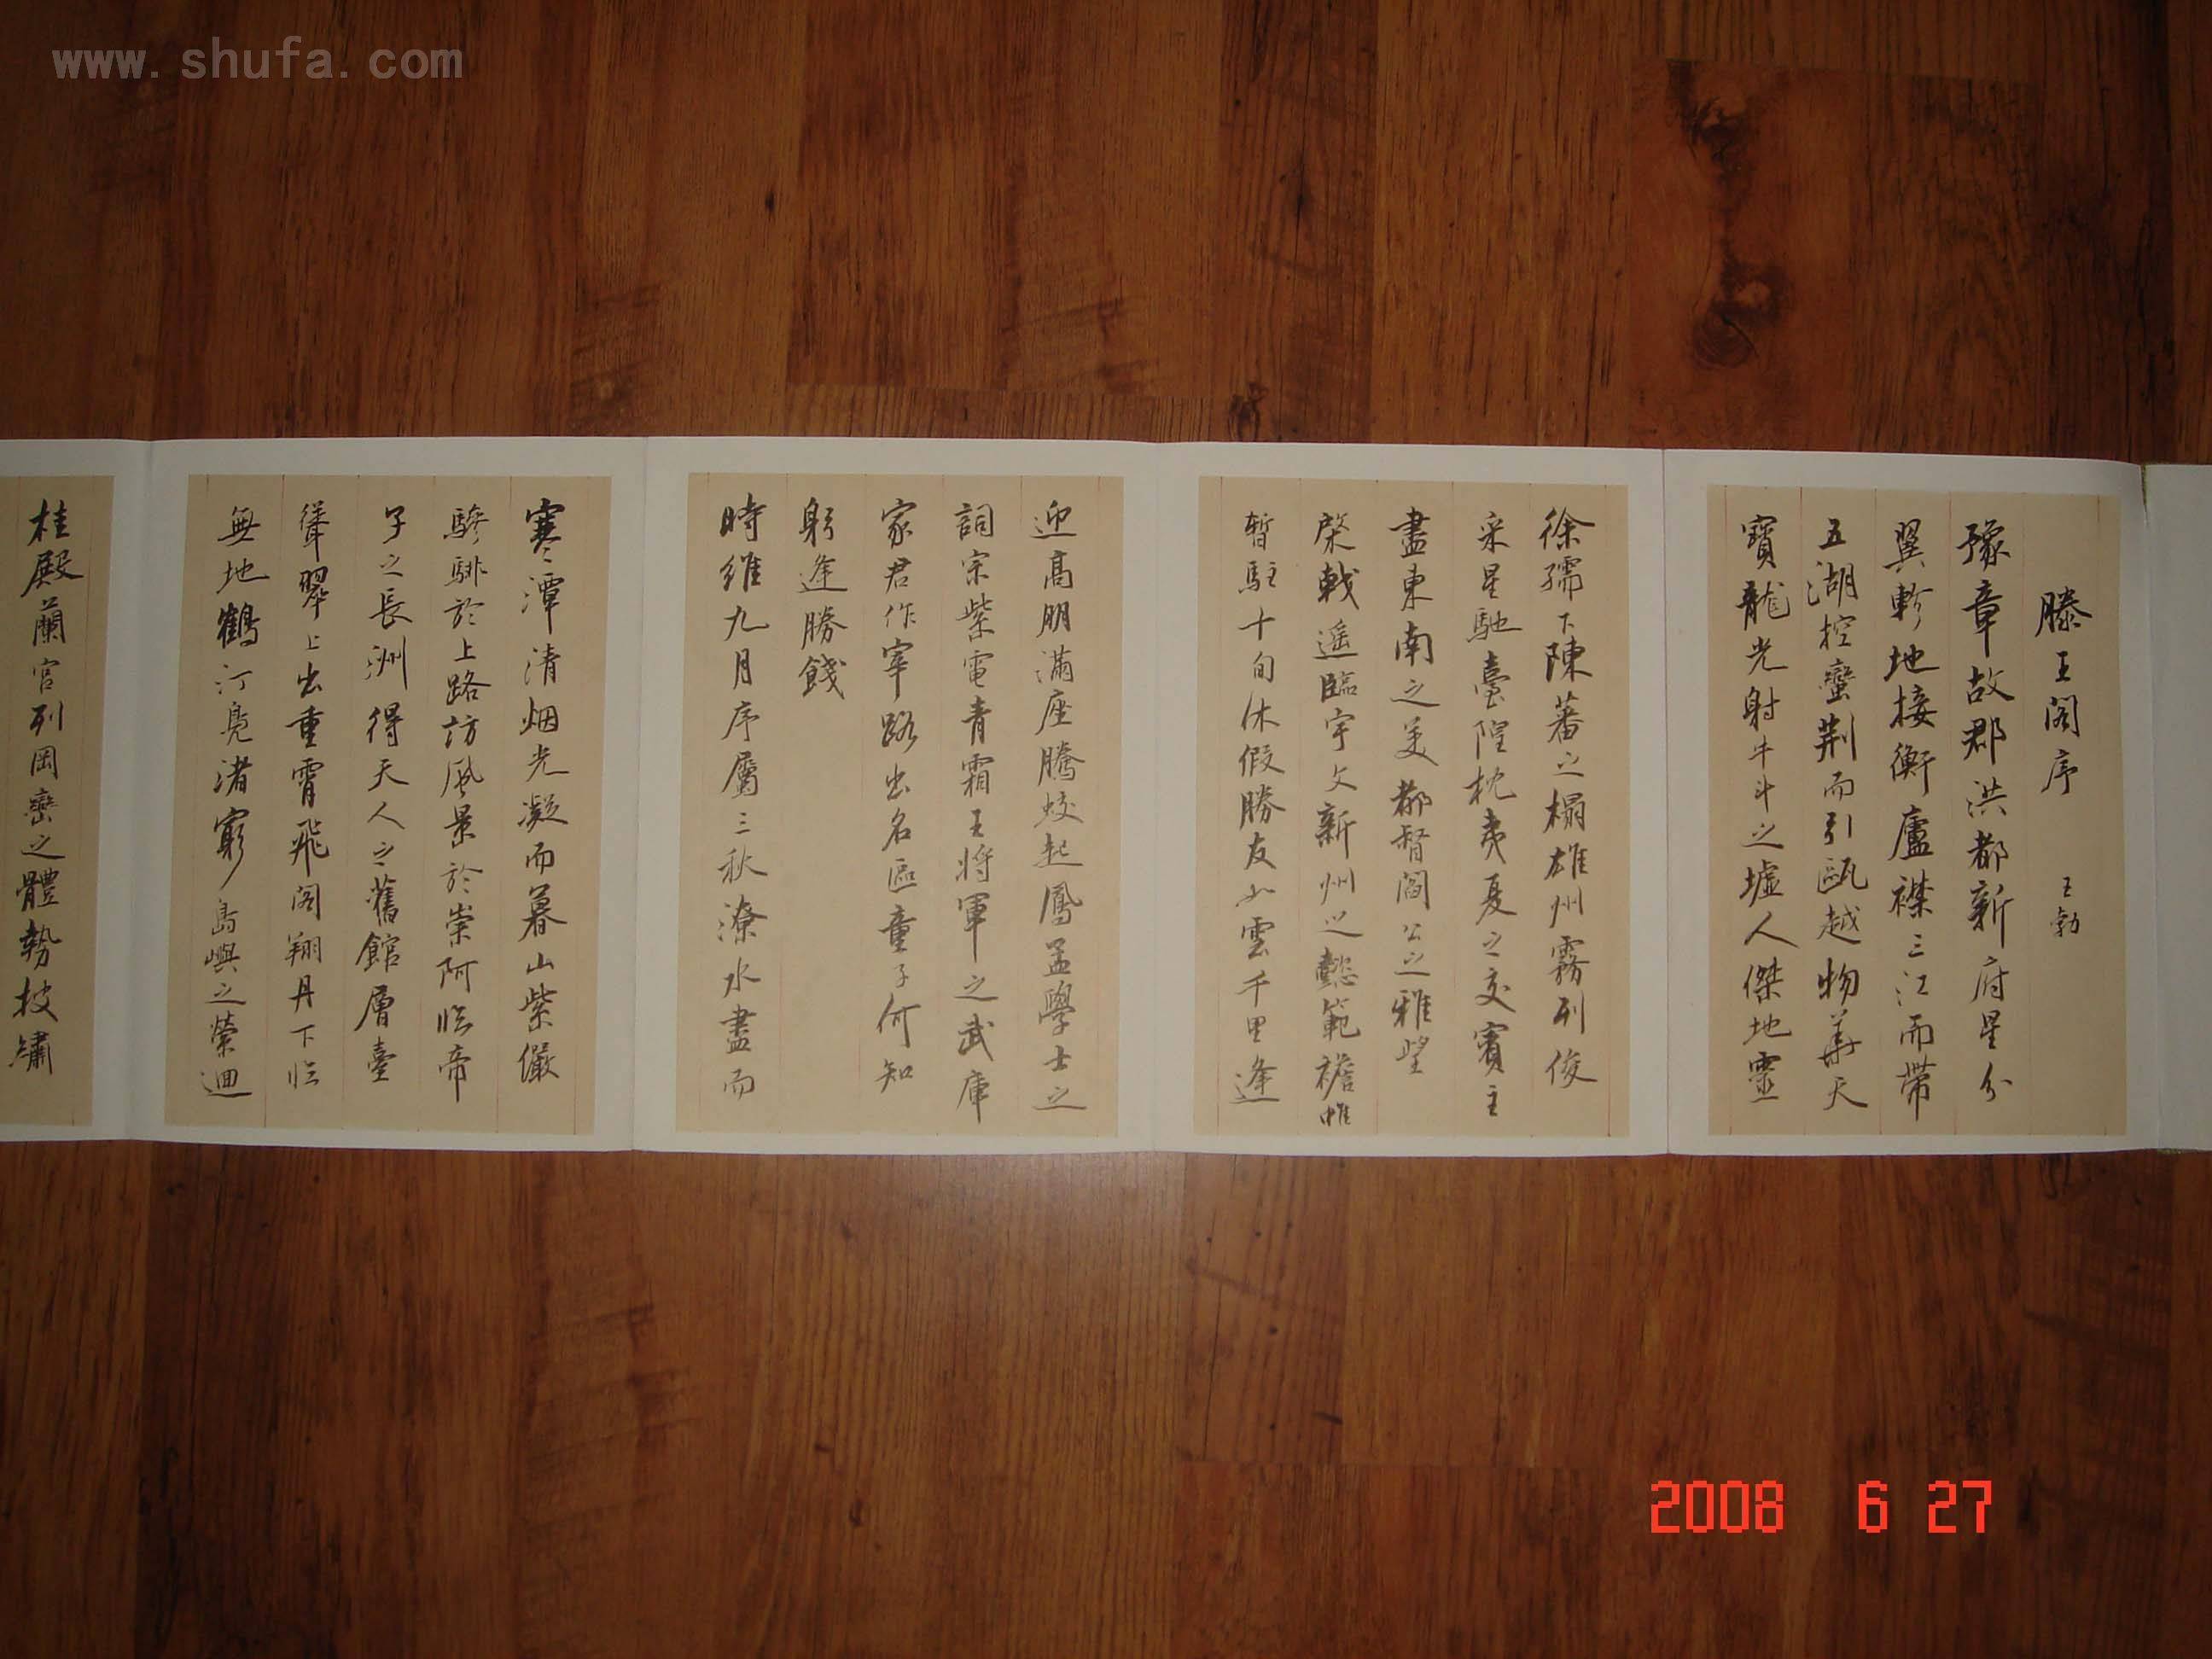 www.shufa.com
滕王阁序 王勃
豫章故郡洪都新府星分
翼軫地接衡廬襟三江而带
五湖控蠻荆而引甌越物華天
寶龍光射牛斗之墟人傑地靈
徐孺下陳蕃之榻雄州霧列俊
采星馳臺隍枕夷夏之交賓主
盡東南之美都督閻公之雅望
棨戟遥臨宇文新州之懿範襜帷
暫駐十旬休假勝友如雲千里逢
迎高朋滿座騰蛟起鳳孟學士之
詞宗紫電青霜王將軍之武庫
家君作宰路出名區童子何知
躬逢勝餞
時維九月序屬三秋潦水盡而
寒潭清烟光凝而暮山紫儼
驂騑於上路訪風景於崇阿临帝
子之長洲得天人之舊館層臺
聳翠上出重霄飛阁翔丹下临
無地鶴汀凫渚窮島嶼之縈迴
桂殿蘭宫列岡巒之體勢披繡
2008 6 27